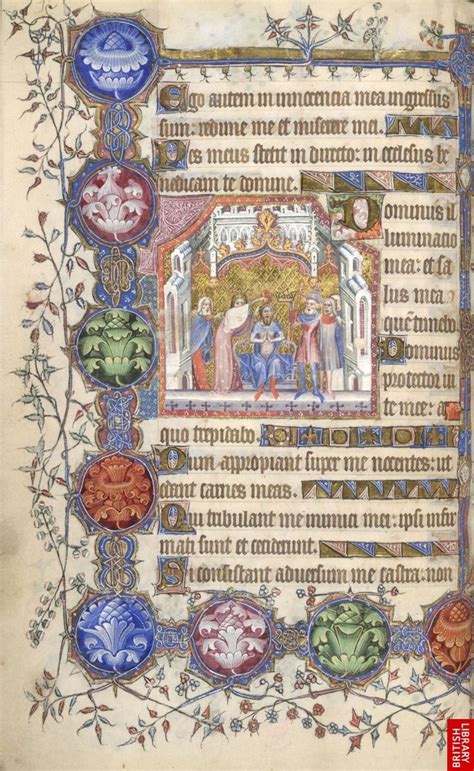 Ego autem in innocencia mea ingressus
sum: redime me et miserere mei.
Pes meus stetit in directo: in ecclesiis be
nedicam te domine.
Dominus il
luminacio
mea: et sa
lus mea
quem timebo
Dominus
protector ui
te mee: a
quo trepidabo.
Dum appropiant super me nocentes: ut
edant carnes meas.
Qui tribulant me inimici mei: ipsi infir
mati sunt et ceciderunt.
Si consistant aduersum me castra: non
BRITISH
LIBRARY